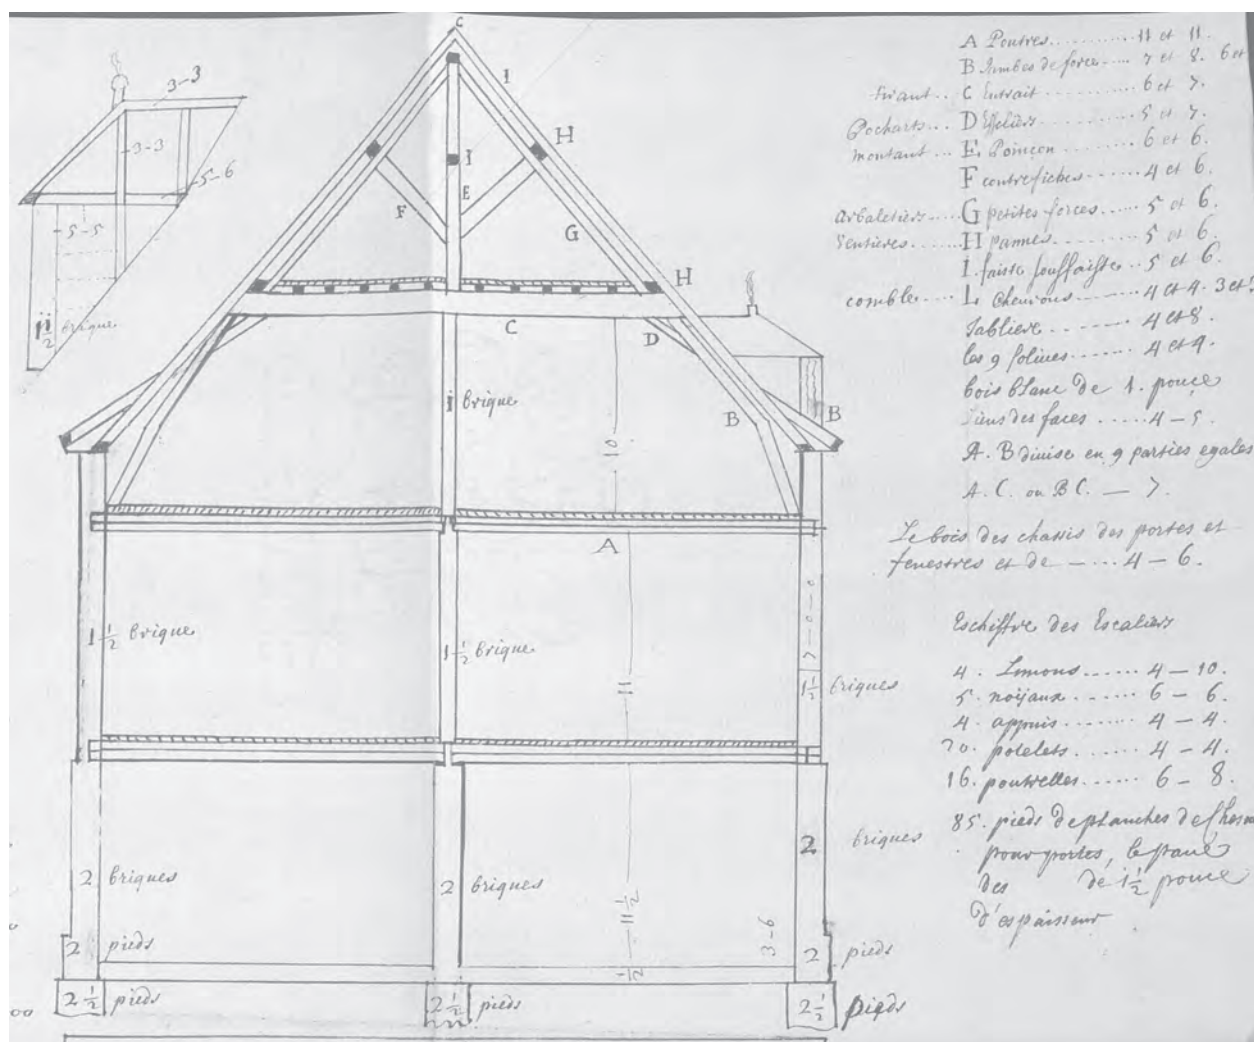 C
3-3
I
H
3-3
I
5-6
E
F
G
5-5
H
1 1/2 brique
C
D
1 brique
B
B
10
A
1 1/2 brique
1 1/2 brique
7-0-0
11
1 1/2 briques
2 briques
2 briques
2 briques
11 1/2
3-6
2 pieds
1/2
2 pieds
2 1/2 pieds
2 1/2 pieds
2 1/2 pieds
00
A Poutres............ 11 et 11.
B Jambes de force..... 7 et 8. 6 et
tirant... C Entrait............ 6 et 7.
Pocharts... D Esseliers......... 5 et 7.
montant... E. Poinçon......... 6 et 6.
F contrefiches....... 4 et 6.
arbaletiers..... G petites forces...... 5 et 6.
Ventieres....... H pannes......... 5 et 6.
I. faiste souffaiste.. 5 et 6.
comble.... L Chevrons..... 4 et 4. 3 et
Sabliere........ 4 et 8.
les 9 solives....... 4 et 4.
bois blanc de 1. pouce
liens des faces ..... 4 - 5.
A. B divise en 9 parties egales
A. C. ou BC. — 7.
Le bois des chassis des portes et
fenestres et de — ... 4 — 6.
Eschiffre des Escaliers
4. Limons...... 4 — 10.
5. noÿaux....... 6 — 6.
4. appuis....... 4 — 4.
70. potelets...... 4 — 4.
16. poutrelles...... 6 — 8.
85. pieds de planches de
pour portes, le
des de 1 1/2 pouce
d'espaisseur